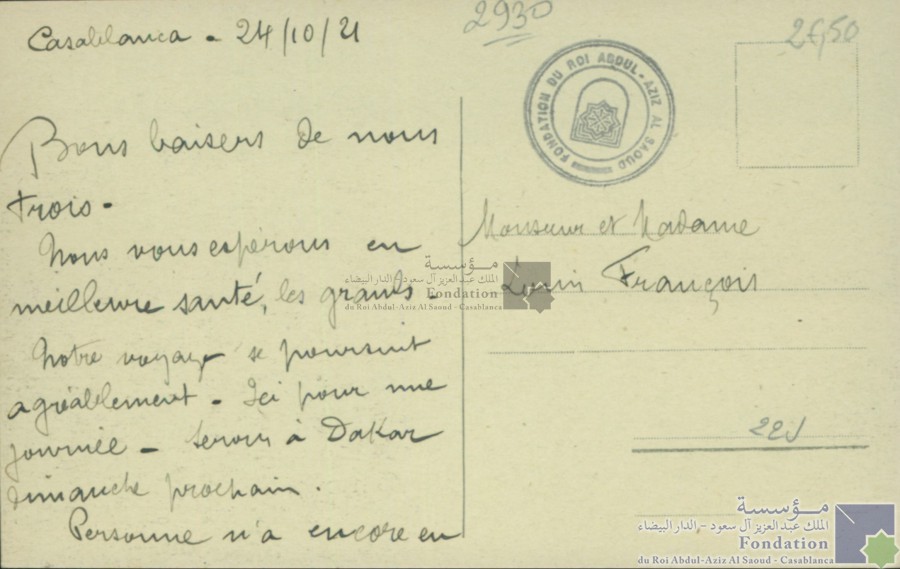 Casablanca - 24/10/21
2930
2f,50
FONDATION DU ROI ABDUL-AZIZ AL SAOUD
Bons baisers de nous
trois -
Nous vous espérons en
meilleure santé, les grands -
Notre voyage se poursuit
agréablement - Ici pour une
journée - Serons à Dakar
dimanche prochain.
Personne n'a encore eu
Monsieur et Madame
François
مؤسسة
الملك عبد العزيز آل سعود - الدار البيضاء
Fondation
du Roi Abdul-Aziz Al Saoud - Casablanca
مؤسسة
الملك عبد العزيز آل سعود - الدار البيضاء
Fondation
du Roi Abdul-Aziz Al Saoud - Casablanca